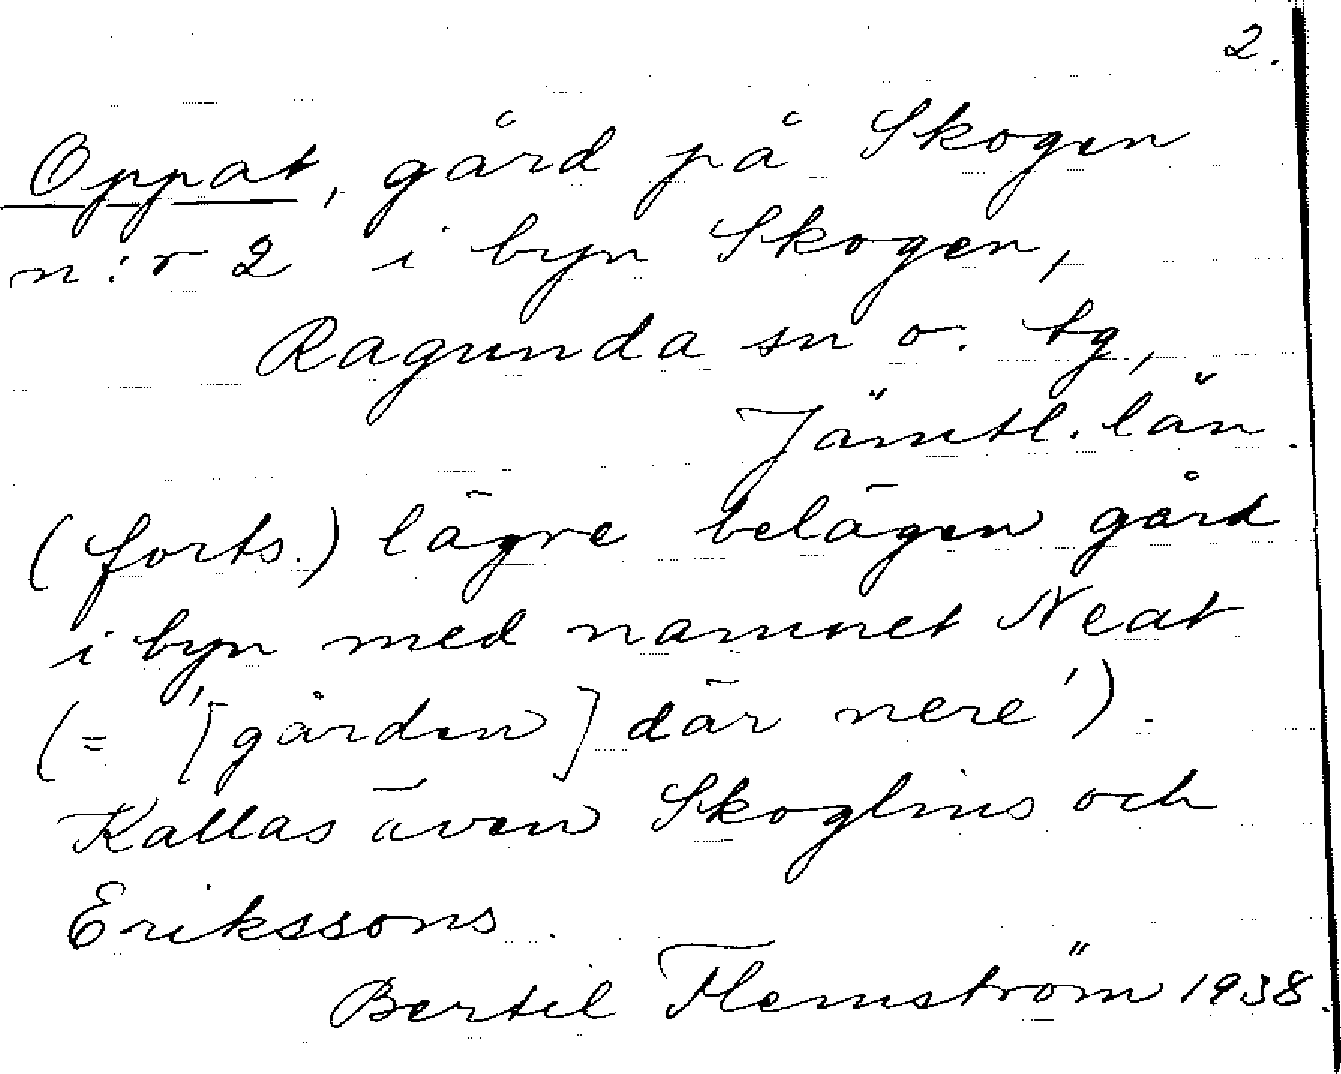 2.
Oppat, gård på Skogen
n:r 2 i byn Skogen,
Ragunda sn o. tg,
Jämtl. län.
(forts.) lägre belägen gård
i byn med namnet Neat
(= '[gården] där nere').
Kallas även Skoglins och
Erikssons.
Bertil Flemström 1938.